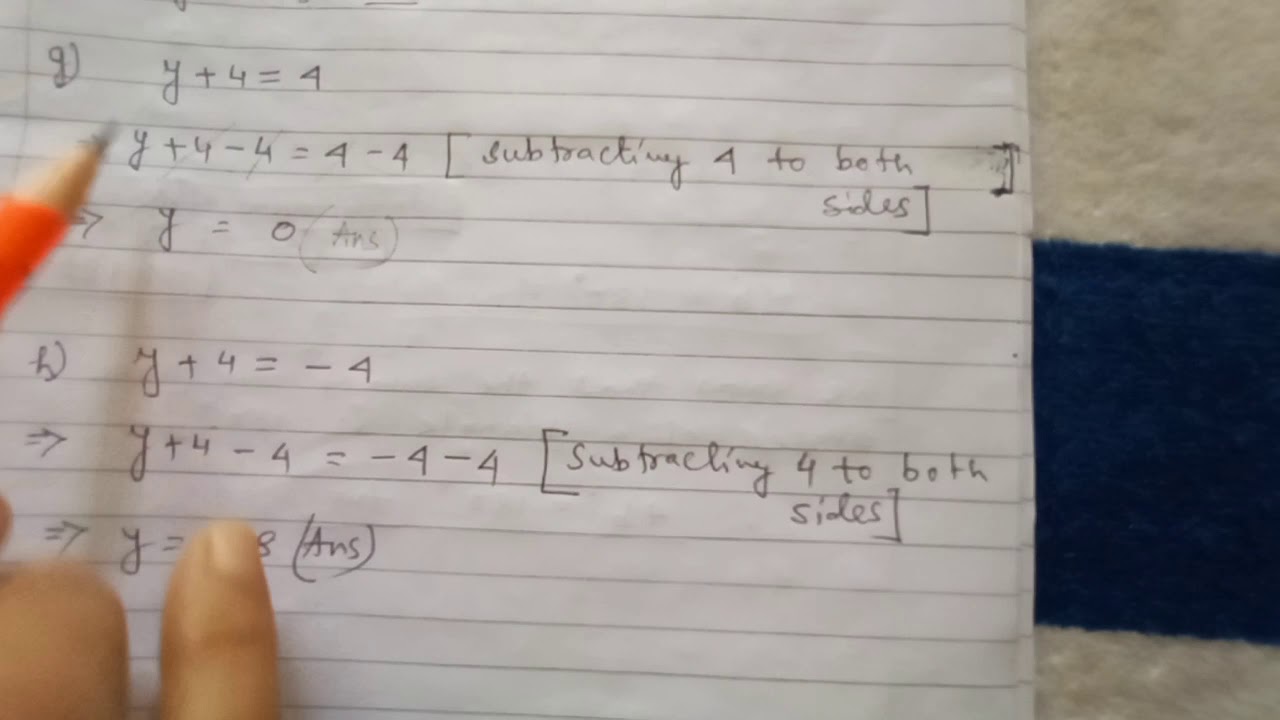 g) y + 4 = 4
⇒ y + 4 - 4 = 4 - 4 [subtracting 4 to both
sides]
⇒ y = 0 (Ans)
h) y + 4 = - 4
⇒ y + 4 - 4 = - 4 - 4 [Subtracting 4 to both
sides]
⇒ y = 8 (Ans)